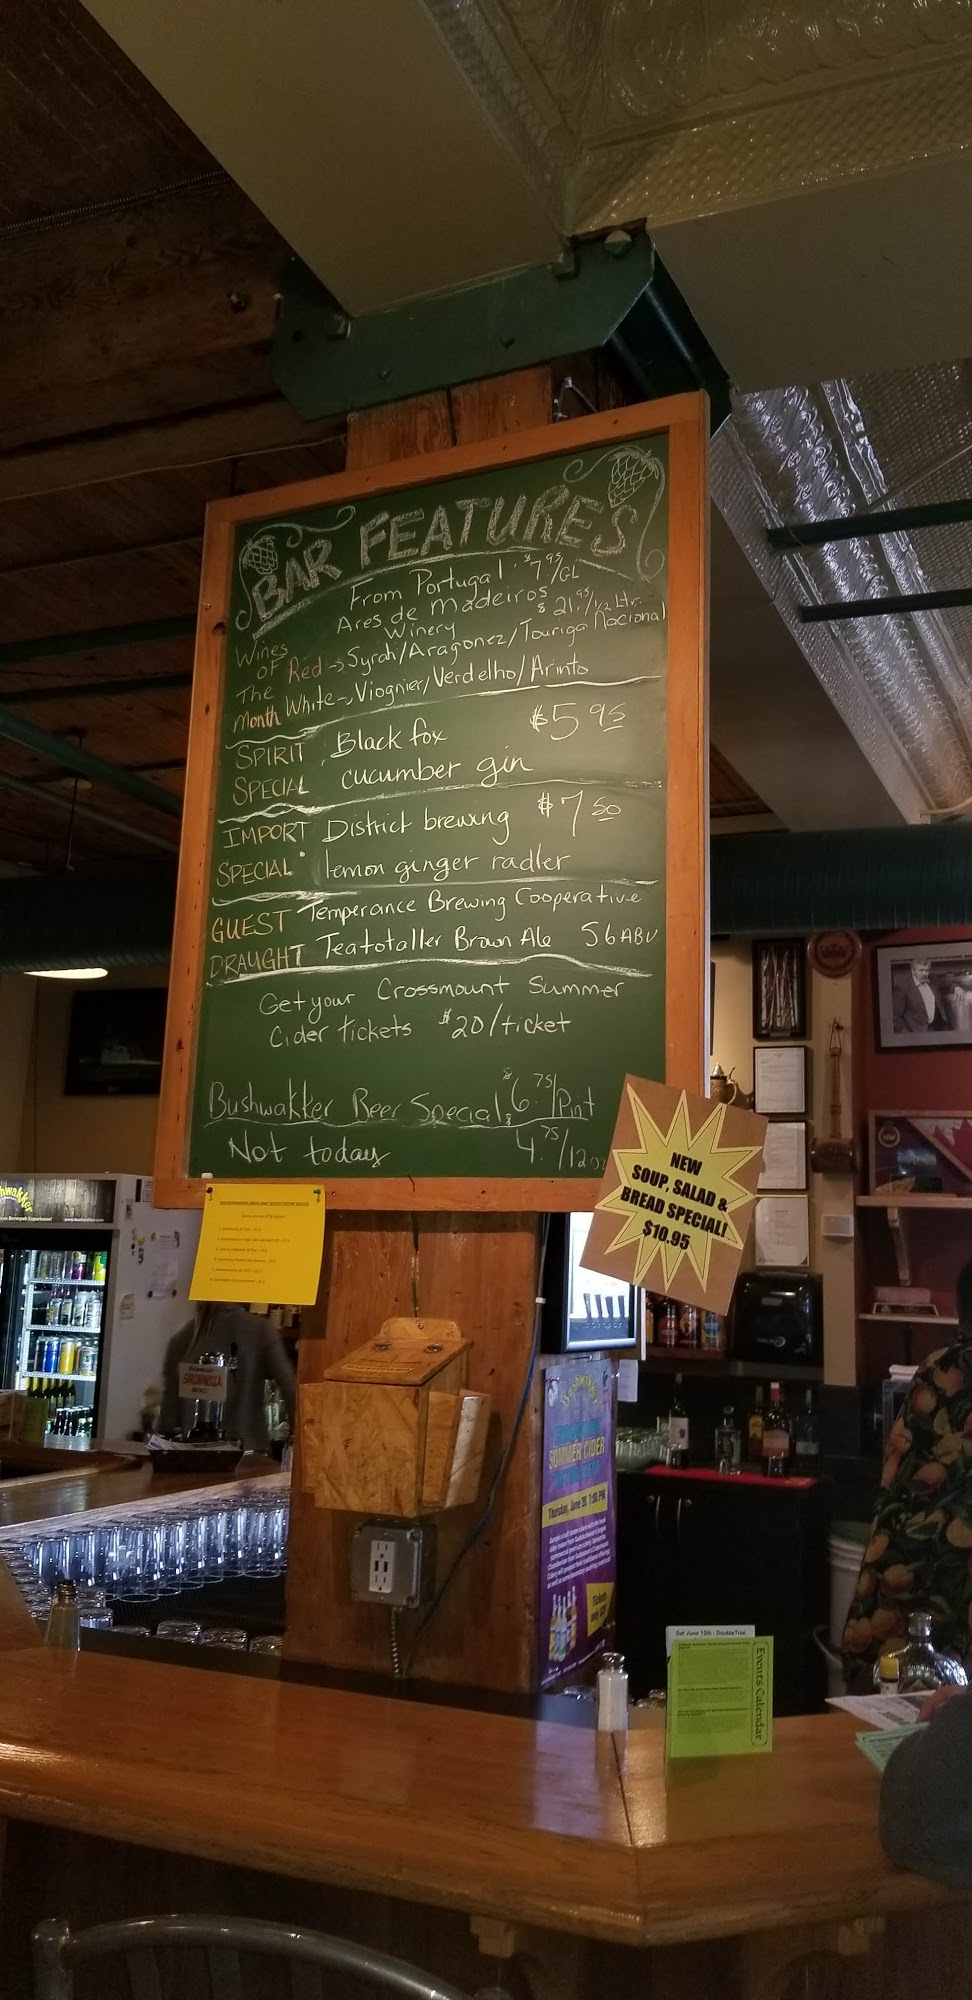 BAR FEATURES
From Portugal $7.95/GL
Ares de Madeiros $21.95/½ Ltr.
Winery
Wines
of
The
Month
Red → Syrah/Aragonez/Touriga Nacional
White → Viognier/Verdelho/Arinto
SPIRIT Black fox $5 95
SPECIAL cucumber gin
IMPORT District brewing $7 50
SPECIAL lemon ginger radler
GUEST Temperance Brewing Cooperative
DRAUGHT Teatotaller Brown Ale 5.6 ABV
Get your Crossmount Summer
Cider tickets $20/ticket
Bushwakker Beer Special $6.75/Pint
Not today $4.75/12oz
NEW
SOUP, SALAD &
BREAD SPECIAL!
$10.95
Bushwakker
SUMMER CIDER
Thursday, June 20, 7:00 PM
Sat June 15th - DoubleTree
Events Calendar